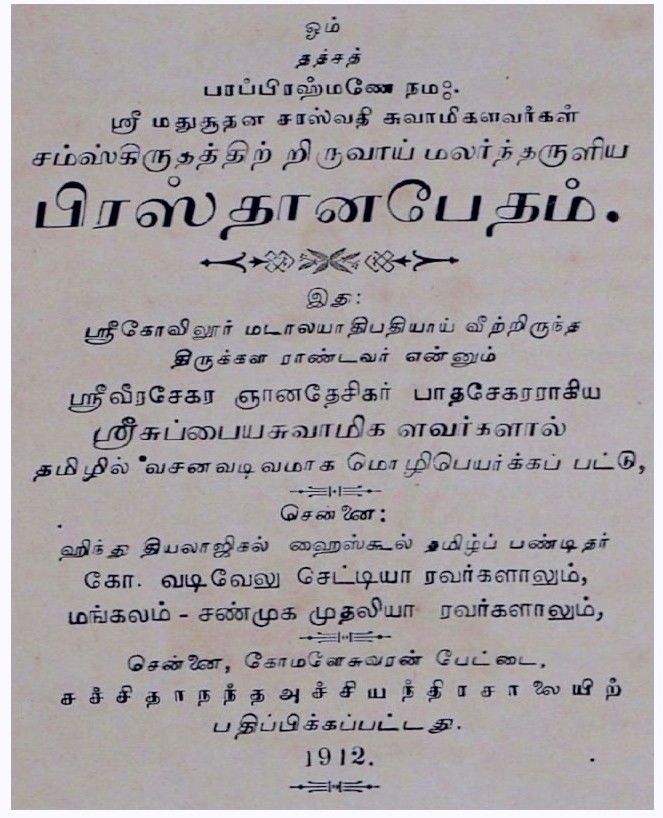 ஓம்
தத்சத்
பரப்பிரஹ்மணே நமஃ.
ஸ்ரீ மதுசூதன சரஸ்வதி சுவாமிகளவர்கள்
சம்ஸ்கிருதத்திற் றிருவாய் மலர்ந்தருளிய
பிரஸ்தானபேதம்.
இது:
ஸ்ரீகோவிலூர் மடாலயாதிபதியாய் வீற்றிருந்த
திருக்கள ராண்டவர் என்னும்
ஸ்ரீவீரசேகர ஞானதேசிகர் பாதசேகரராகிய
ஸ்ரீசுப்பையசுவாமிக ளவர்களால்
தமிழில் வசனவடிவமாக மொழிபெயர்க்கப் பட்டு,
சென்னை:
ஹிந்து தியலாஜிகல் ஹைஸ்கூல் தமிழ்ப் பண்டிதர்
கோ. வடிவேலு செட்டியா ரவர்களாலும்,
மங்கலம் - சண்முக முதலியா ரவர்களாலும்,
சென்னை, கோமளேசுவரன் பேட்டை,
சச்சிதாநந்தஅச்சியந்திரசாலையிற்
பதிப்பிக்கப்பட்டது.
1912.